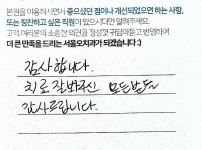 본원을 이용하시면서 좋으셨던 점이나 개선되었으면 하는 사항,
또는 칭찬하고 싶은 직원이 있으시다면 알려주세요.
고객 여러분의 소중한 의견을 정성껏 귀담아듣고 반영하여
더 큰 만족을 드리는 서울오치과가 되겠습니다 :)
감사합니다.
치료 잘해주신 모든분들~
감사드립니다.